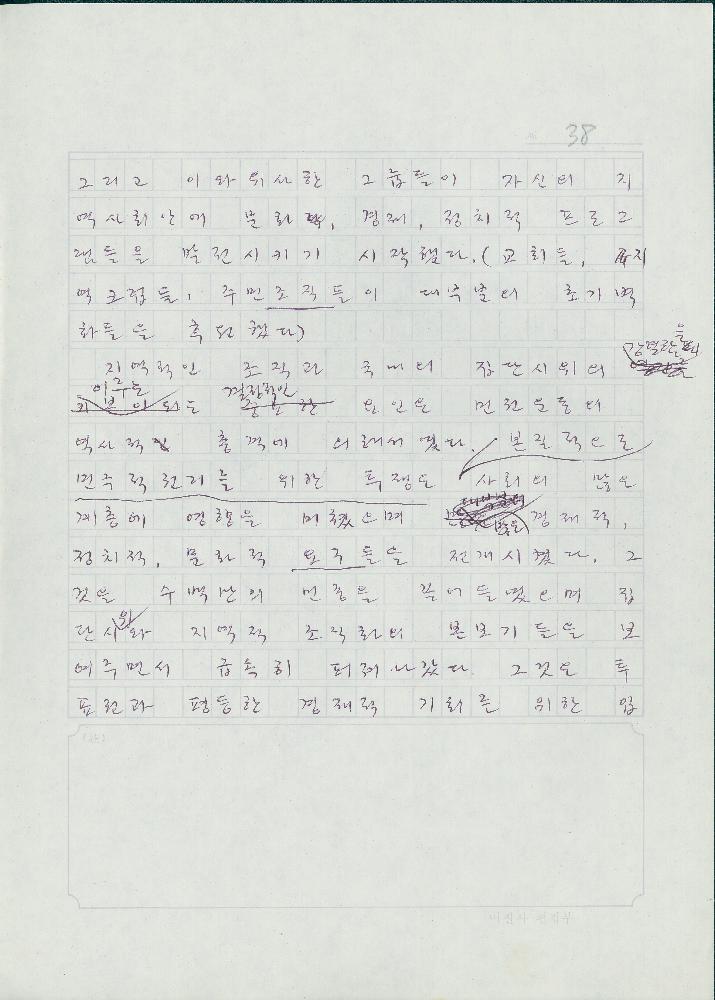 38
그리고 이와 유사한 그룹들이 자신의 지
역사회안에 문화, 경제, 정치적 프로그
램들을 발전시키기 시작했다. (교회들, 지
역 그룹들, 주민조직들이 대부분의 초기 벽
화들을 후원했다)
지역적인 조직과 국내의 집단시위의
이루는 결정적인 요인은 민권운동의
역사적 충격에 의해서였다. 본질적으로
민주적 권리를 위한 투쟁은 사회의 많은
계층에 영향을 미쳤으며 많은 경제적,
정치적, 문화적 요구들을 전개시켰다. 그
것은 수백만의 민중을 끌어들였으며 집
단시위와 지역적 조직화의 본보기들을 보
여주면서 급속히 퍼져나갔다. 그것은 투
표권과 평등한 경제적 기회를 위한 입